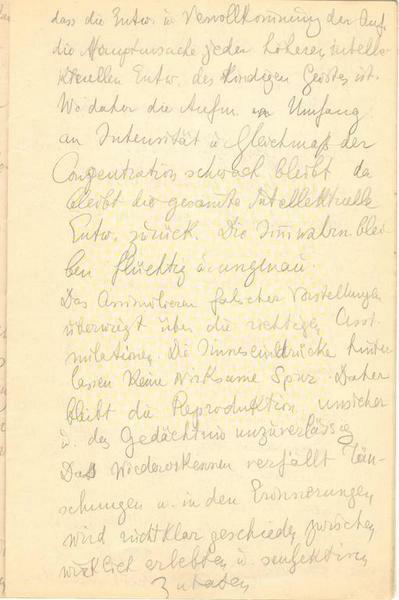 dass die Entw. u Vervollkommnung der Auf.
die Hauptsache jeder höheren intelle-
ktuellen Entw. des kindigen Geistes ist.
Wo daher die Aufm. an Umfang
an Intensität u. Gleichmaß der
Conzentration schwach bleibt da
bleibt die gesamte Intellektuelle
Entw. zurück. Die Sinnwahrn. blei-
ben flüchtig u. ungenau.
Das Assimilieren falscher Vorstellungen
überwiegt über die richtigen Assi-
milationen. Die Sinneseindrücke hinter
lassen keine wirksame Spur. Daher
bleibt die Reproduktion unsicher
u. das Gedächtnis unzuverlässig
Das Wiedererkennen verfällt Täu-
schungen u. in den Erinnerungen
wird nicht klar geschieden zwischen
wirklich erlebten u. subjektiven
Zutaten